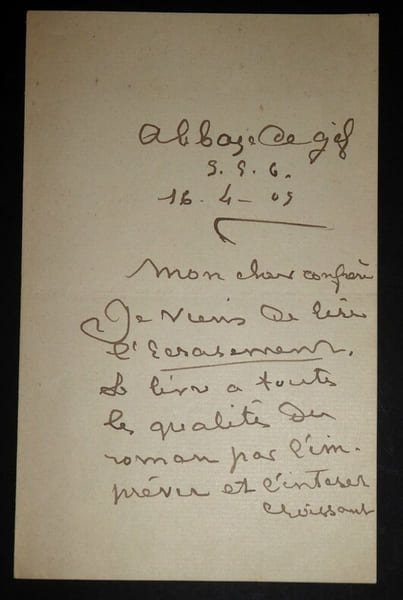 Abbaye de gif
S. S. O.
16 - 4 - 05
Mon cher confrère
Je viens de lire
l'Ecrasement.
Le livre a toutes
les qualités du
roman par l'im-
prévu et l'intérêt
croissant